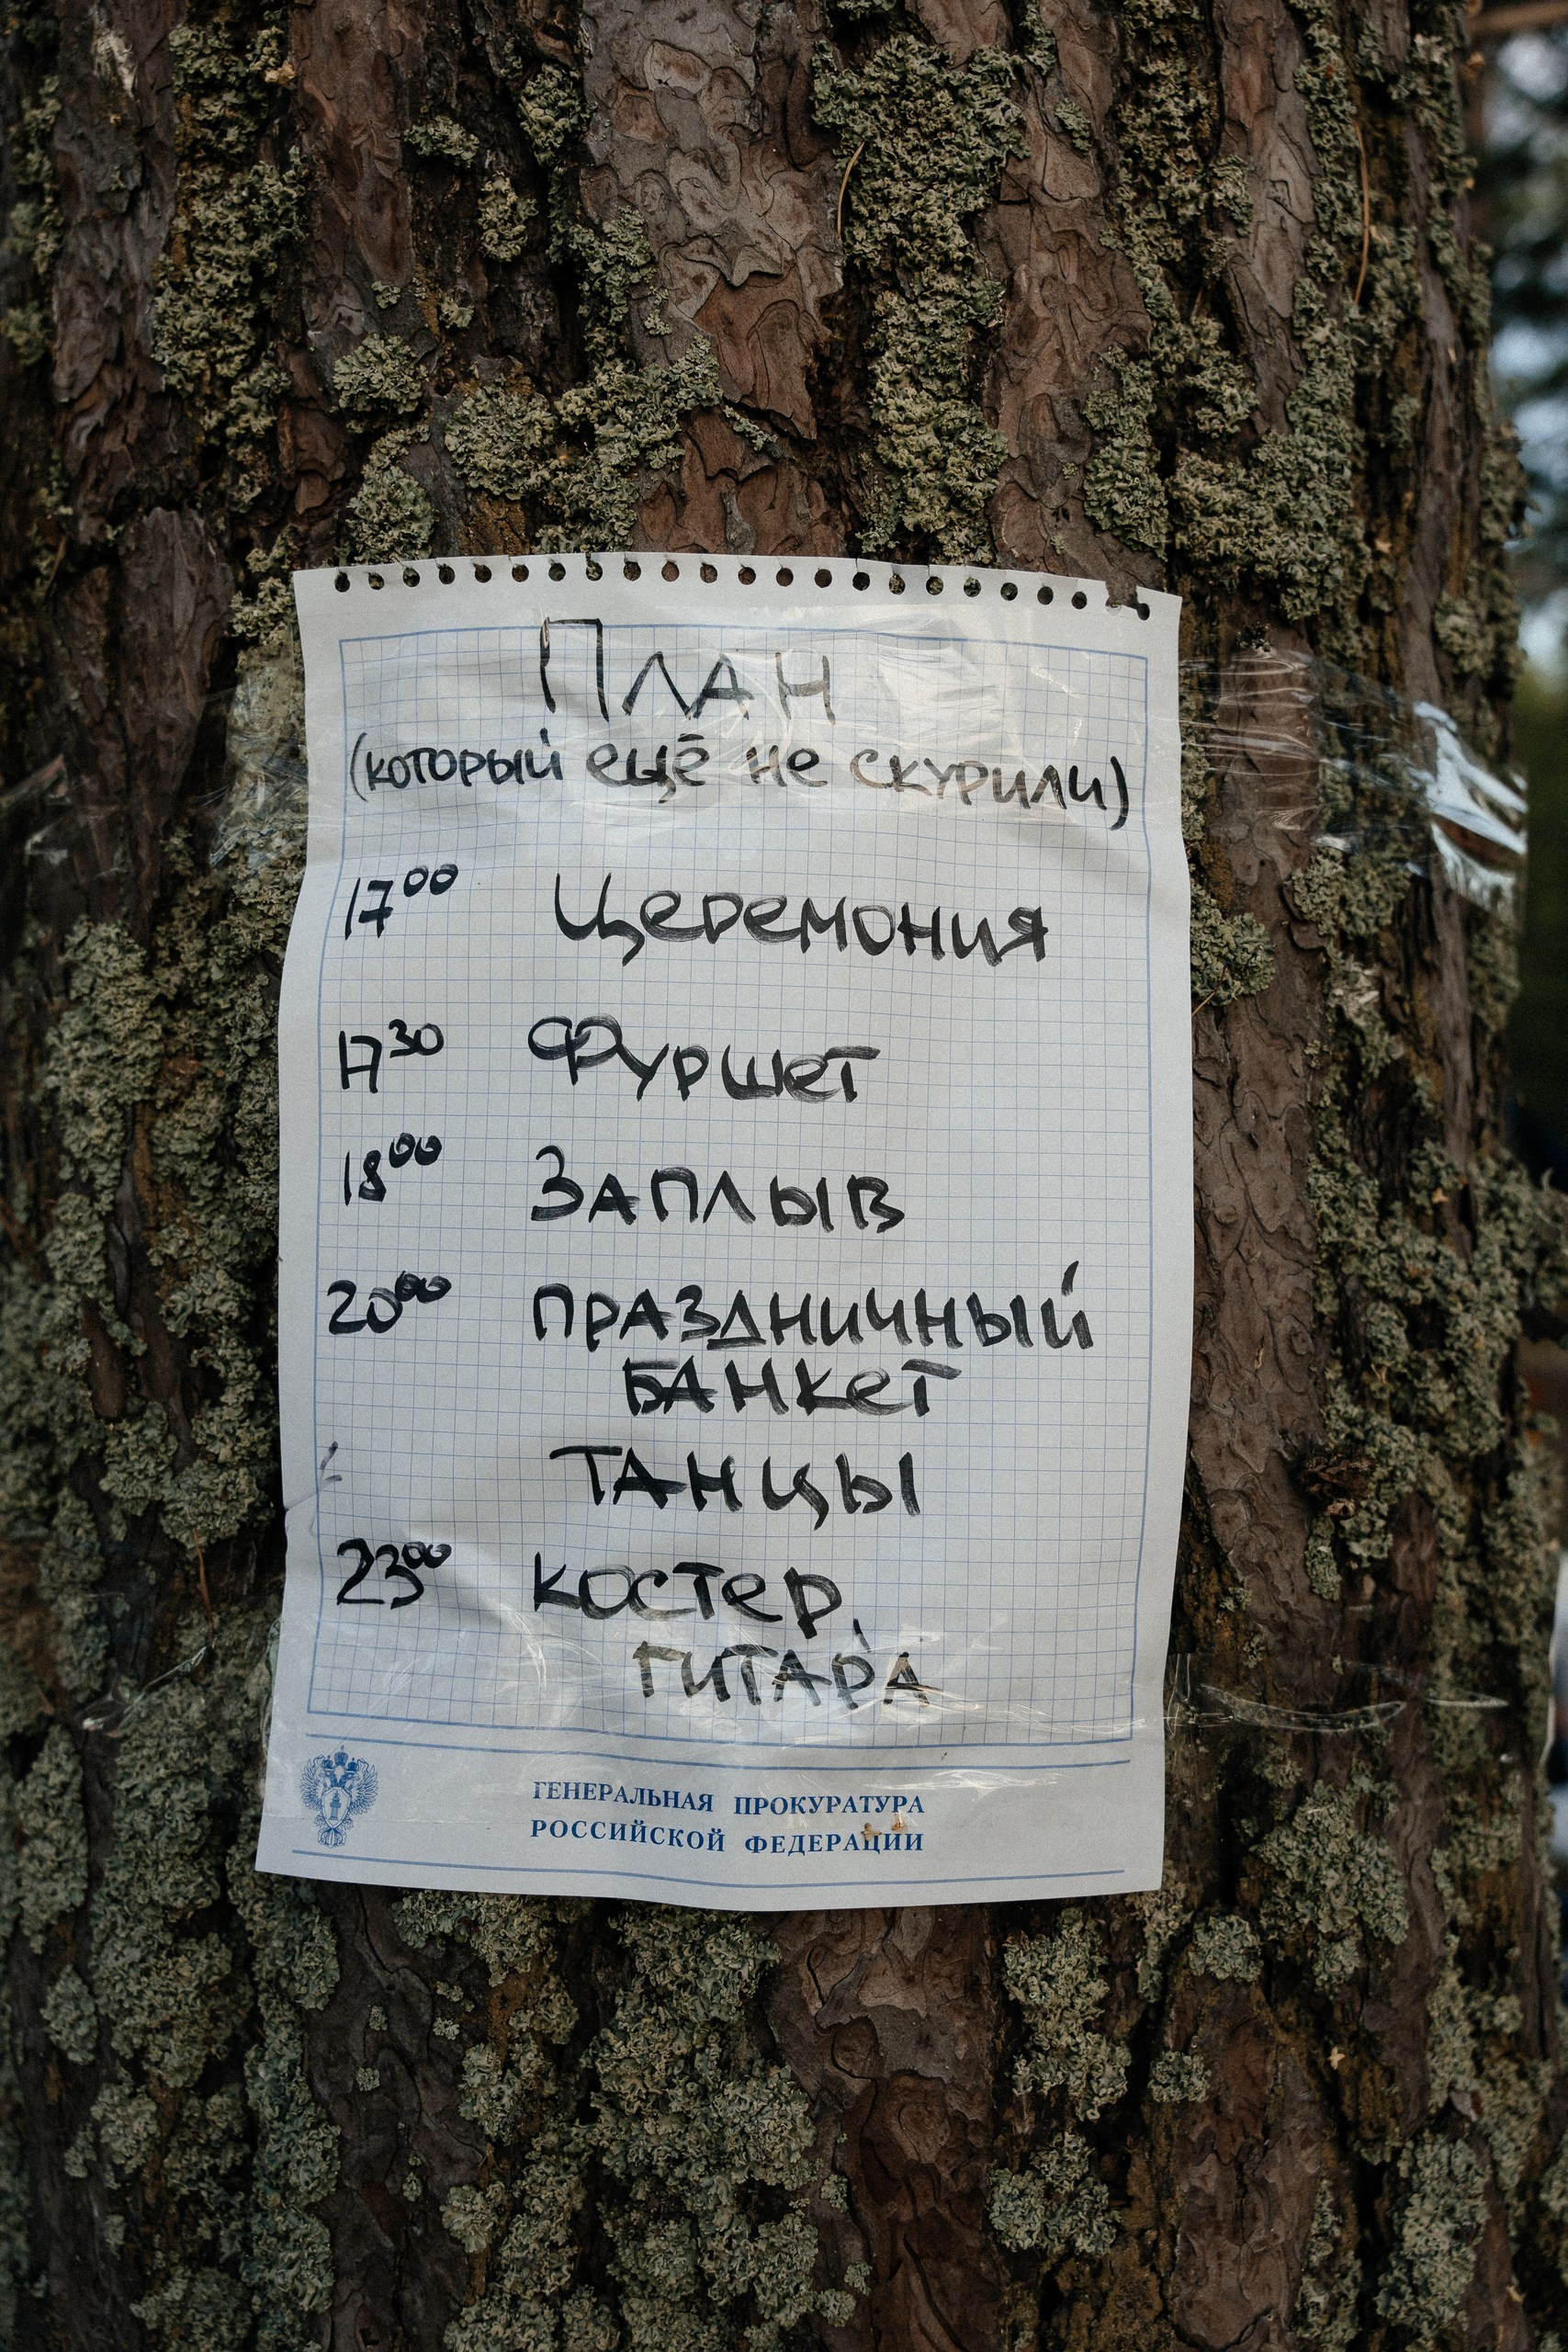 План
(который ещё не скурили)
17⁰⁰ Церемония
17³⁰ Фуршет
18⁰⁰ Заплыв
20⁰⁰ праздничный
банкет
танцы
23⁰⁰ костер,
гитара
ГЕНЕРАЛЬНАЯ ПРОКУРАТУРА
РОССИЙСКОЙ ФЕДЕРАЦИИ